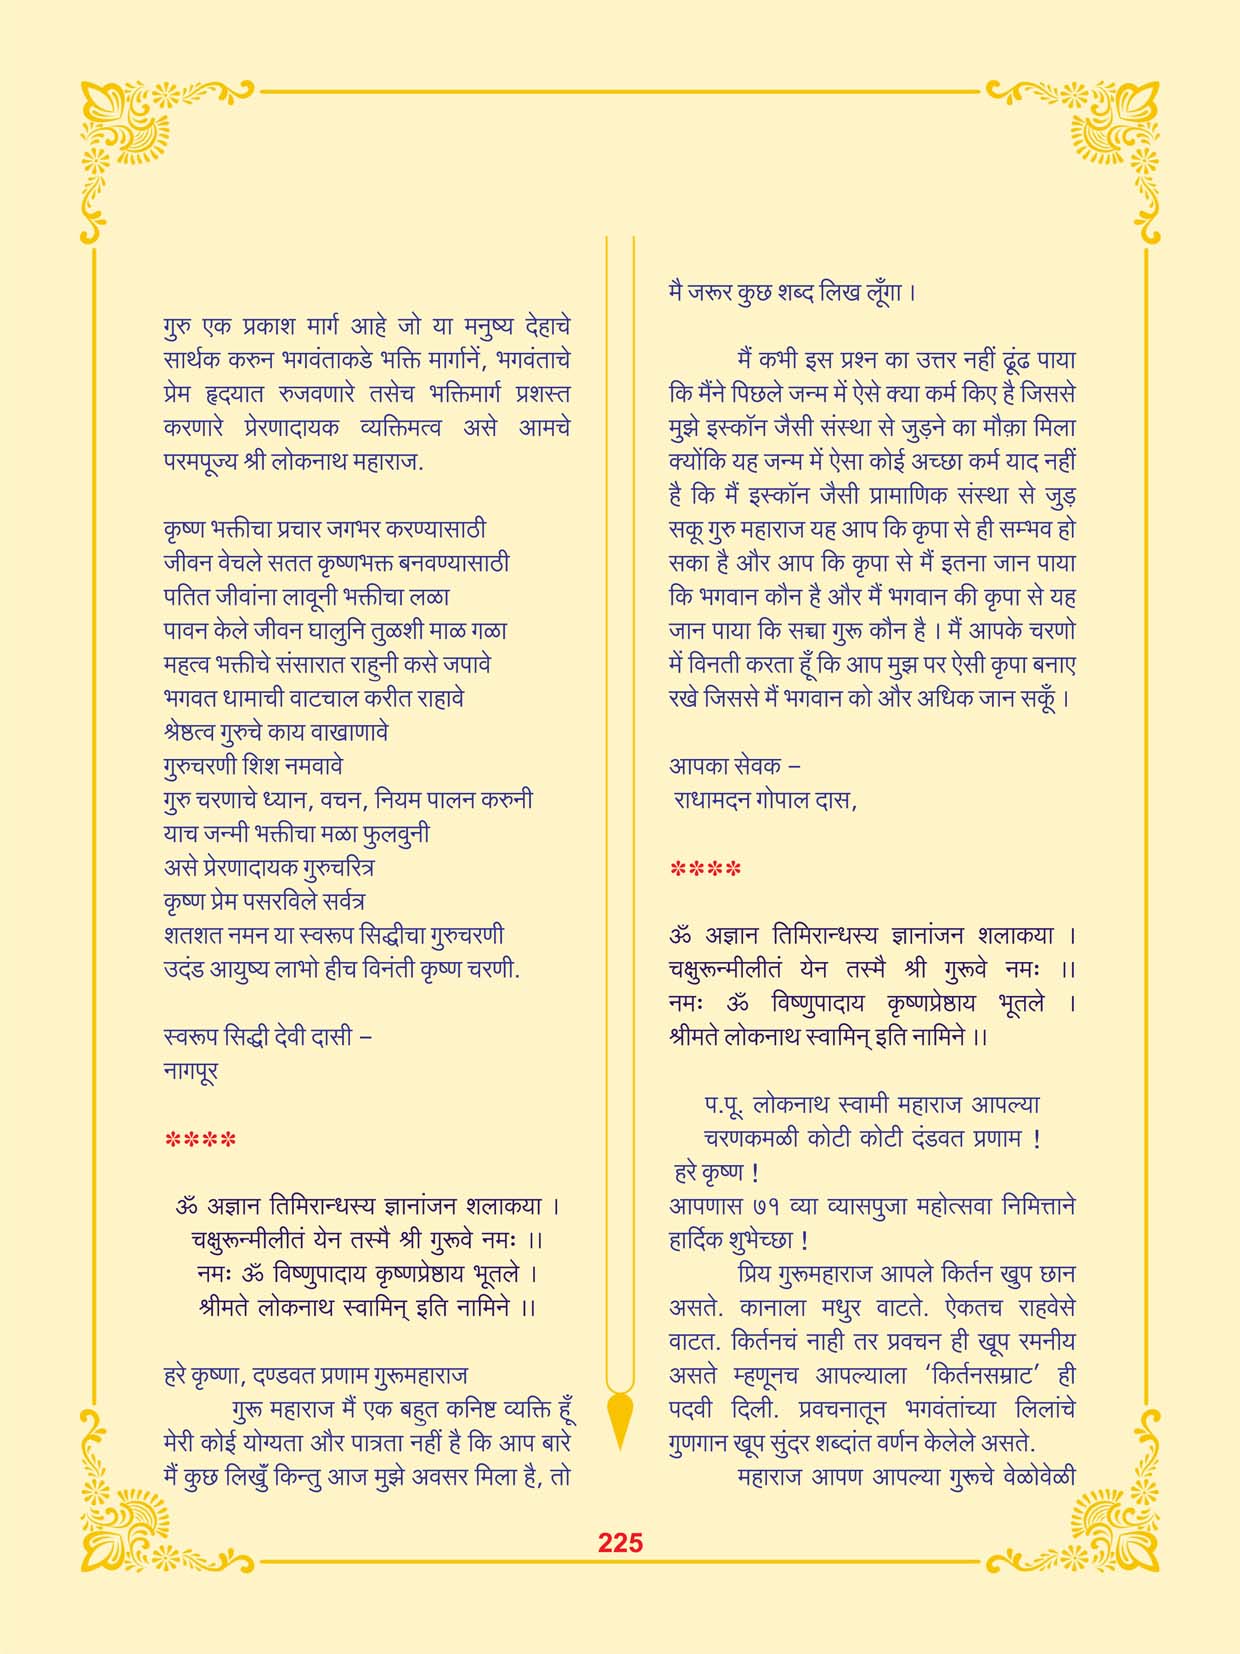 गुरु एक प्रकाश मार्ग आहे जो या मनुष्य देहाचे
सार्थक करुन भगवंताकडे भक्ति मार्गानें, भगवंताचे
प्रेम हृदयात रुजवणारे तसेच भक्तिमार्ग प्रशस्त
करणारे प्रेरणादायक व्यक्तिमत्व असे आमचे
परमपूज्य श्री लोकनाथ महाराज.
कृष्ण भक्तीचा प्रचार जगभर करण्यासाठी
जीवन वेचले सतत कृष्णभक्त बनवण्यासाठी
पतित जीवांना लावूनी भक्तीचा लळा
पावन केले जीवन घालुनि तुळशी माळ गळा
महत्व भक्तीचे संसारात राहुनी कसे जपावे
भगवत धामाची वाटचाल करीत राहावे
श्रेष्ठत्व गुरुचे काय वाखाणावे
गुरुचरणी शिश नमवावे
गुरु चरणाचे ध्यान, वचन, नियम पालन करुनी
याच जन्मी भक्तीचा मळा फुलवुनी
असे प्रेरणादायक गुरुचरित्र
कृष्ण प्रेम पसरविले सर्वत्र
शतशत नमन या स्वरूप सिद्धीचा गुरुचरणी
उदंड आयुष्य लाभो हीच विनंती कृष्ण चरणी.
स्वरूप सिद्धी देवी दासी –
नागपूर
****
ॐ अज्ञान तिमिरान्धस्य ज्ञानांजन शलाकया ।
चक्षुरून्मीलीतं येन तस्मै श्री गुरूवे नमः ।।
नमः ॐ विष्णुपादाय कृष्णप्रेष्ठाय भूतले ।
श्रीमते लोकनाथ स्वामिन् इति नामिने ।।
हरे कृष्णा, दण्डवत प्रणाम गुरूमहाराज
गुरू महाराज मैं एक बहुत कनिष्ट व्यक्ति हूँ
मेरी कोई योग्यता और पात्रता नहीं है कि आप बारे
मैं कुछ लिखुँ किन्तु आज मुझे अवसर मिला है, तो
मै जरूर कुछ शब्द लिख लूँगा ।
मैं कभी इस प्रश्न का उत्तर नहीं ढूंढ पाया
कि मैंने पिछले जन्म में ऐसे क्या कर्म किए है जिससे
मुझे इस्कॉन जैसी संस्था से जुड़ने का मौक़ा मिला
क्योंकि यह जन्म में ऐसा कोई अच्छा कर्म याद नहीं
है कि मैं इस्कॉन जैसी प्रामाणिक संस्था से जुड़
सकू गुरु महाराज यह आप कि कृपा से ही सम्भव हो
सका है और आप कि कृपा से मैं इतना जान पाया
कि भगवान कौन है और मैं भगवान की कृपा से यह
जान पाया कि सच्चा गुरू कौन है । मैं आपके चरणो
में विनती करता हूँ कि आप मुझ पर ऐसी कृपा बनाए
रखे जिससे मैं भगवान को और अधिक जान सकूँ ।
आपका सेवक –
राधामदन गोपाल दास,
****
ॐ अज्ञान तिमिरान्धस्य ज्ञानांजन शलाकया ।
चक्षुरून्मीलीतं येन तस्मै श्री गुरूवे नमः ।।
नमः ॐ विष्णुपादाय कृष्णप्रेष्ठाय भूतले ।
श्रीमते लोकनाथ स्वामिन् इति नामिने ।।
प.पू. लोकनाथ स्वामी महाराज आपल्या
चरणकमळी कोटी कोटी दंडवत प्रणाम !
हरे कृष्ण !
आपणास ७१ व्या व्यासपुजा महोत्सवा निमित्ताने
हार्दिक शुभेच्छा !
प्रिय गुरूमहाराज आपले किर्तन खुप छान
असते. कानाला मधुर वाटते. ऐकतच राहवेसे
वाटत. किर्तनचं नाही तर प्रवचन ही खूप रमनीय
असते म्हणूनच आपल्याला ‘किर्तनसम्राट’ ही
पदवी दिली. प्रवचनातून भगवंतांच्या लिलांचे
गुणगान खूप सुंदर शब्दांत वर्णन केलेले असते.
महाराज आपण आपल्या गुरूचे वेळोवेळी
225